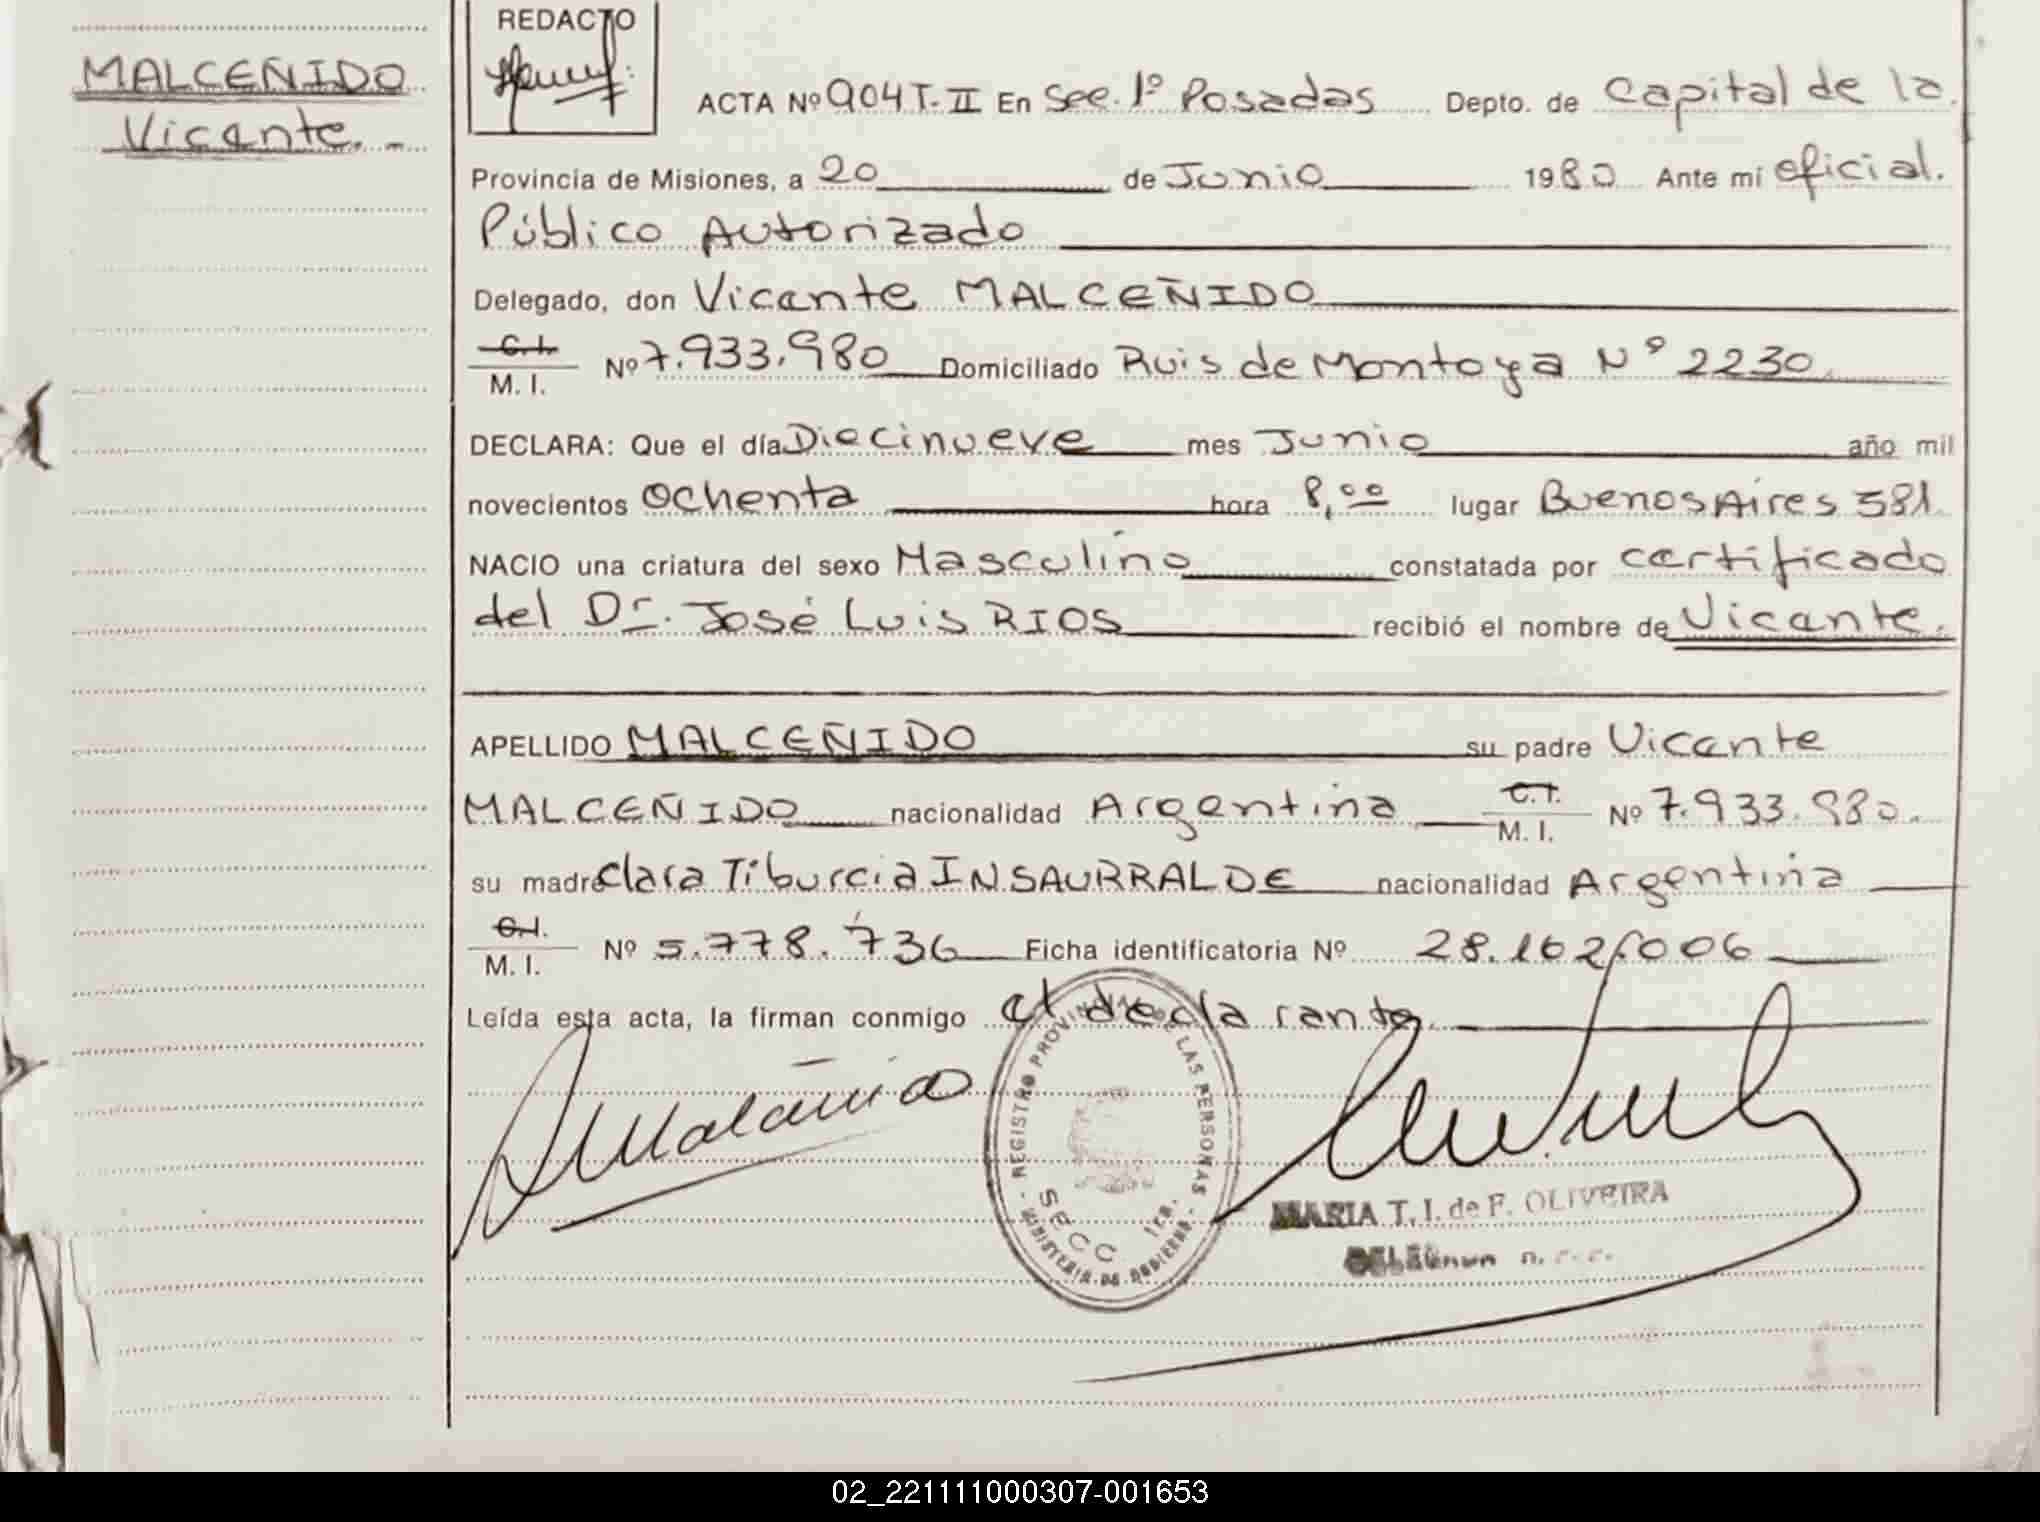 MALCEÑIDO
Vicente.-
REDACTO
ACTA Nº 904 T-II En Sec. 1º Posadas Depto. de Capital de la
Provincia de Misiones, a 20 de Junio 1980 Ante mí oficial.
Público Autorizado
Delegado, don Vicente MALCEÑIDO
C.I.
M. I. Nº 7.933.980 Domiciliado Ruis de Montoya Nº 2230
DECLARA: Que el día Diecinueve mes Junio año mil
novecientos Ochenta hora 8,00 lugar Buenos Aires 581
NACIO una criatura del sexo Masculino constatada por certificado
del Dr. José Luis RIOS recibió el nombre de Vicente.
APELLIDO MALCEÑIDO su padre Vicente
MALCEÑIDO nacionalidad Argentina C.I. M. I. Nº 7.933.980.
su madre Clara Tiburcia INSAURRALDE nacionalidad Argentina
C.I.
M. I. Nº 5.778.736 Ficha identificatoria Nº 28.162.006
Leída esta acta, la firman conmigo el declarante.
REGISTRO PROVINCIAL DE LAS PERSONAS
SECC 1ra.
MINISTERIO DE GOBIERNO
MARIA T. I. de F. OLIVEIRA
02_221111000307-001653